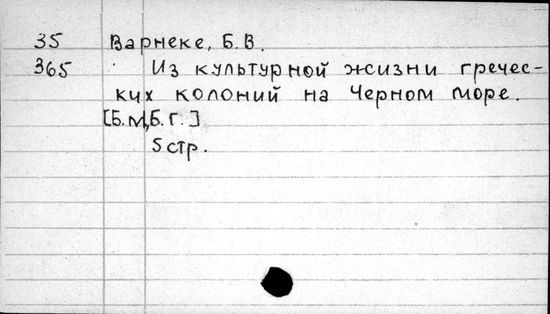 35 Варнеке, Б.В.
365 Из культурной жизни гречес-
ких колоний на Черном море.
[Б.м, Б.г.]
5 стр.